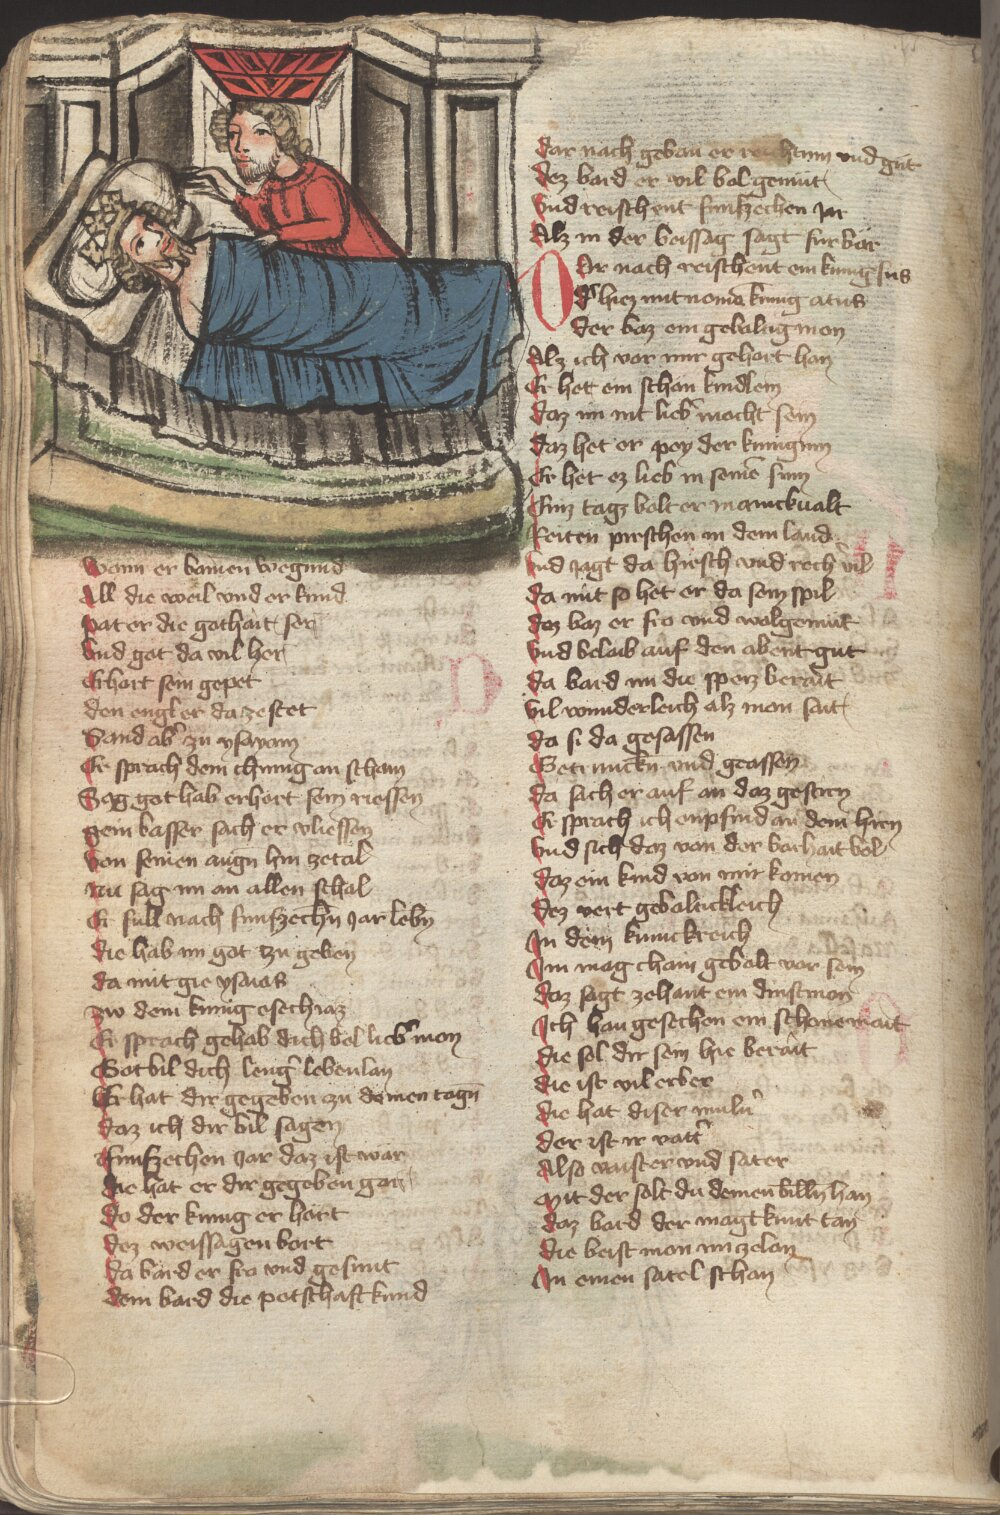 Wann er bainen begund
All die weil und er kund
Pat er die gothait ser
Vnd got da vil her
Erhort sein gepet
den engl er da zestet
Sand ab zu ysayam
Er sprach dem chunig an scham
Sag got hab erhort sein riessen
gein basser sach er vliessen
Von seinen augn hin zetal
nu sag im an allen schal
Er sull nach funfzechn Jar lebn
die hab im got zu geben
da mit gie ysaias
zw dem kunig esechias
Er sprach gehab dich bol lieb mon
Got bil dich leng lebenlan
Er hat dir gegeben zu deinen tagn
daz ich dir bil sagen
funfzechen Jar daz ist war
die hat er dir gegeben gar
do der kunig er hort
dez weissagen bort
da bard er fro und gesunt
dem bard die potschaft kund
dar nach geban er reichtum vnd gut
dez bard er vil bol gemut
Vnd reischent funfzechen Jar
Alz in der beissag sagt fur bar
Dar nach reischent ein kunig sus
der hiez mit nomen kunig atus
der baz ein gebaltig mon
Alz ich vor mir gehort han
Er het ein schon kindlein
daz im nit lieb mocht sein
daz het er pey der kunigin
Er het ez lieb in seine sinn
Einz tagz bolt er manickualt
Reiten pirschen in dem land
und Jagt da hirsch vnd rech vil
da mit so het er da sein spil
dez baz er fro vnd wolgemut
Vnd belaib auf den abent gut
da bard im die speiz berait
Vil wunderleich alz mon sait
da si da gesassen
Getruncken vnd geassen
da sach er auf an daz gestirn
Er sprach ich enpfind an dem hirn
Vnd sich daz von der barhait bol
daz ein kind von mir komen
dez wert gebaltickleich
In dem kunickreich
Im mag chain gebalt vor sein
daz sagt zehant ein dinstmon
Ich han gesechen ein schone mait
die sol dir sein hie berait
die ist vil erber
die hat diser mulner
der ist ir vatter
Also maister vnd sater
mit der solt du deinen billn han
daz bard der magt kunt tan
die beist mon im zelan
In einen satel schan